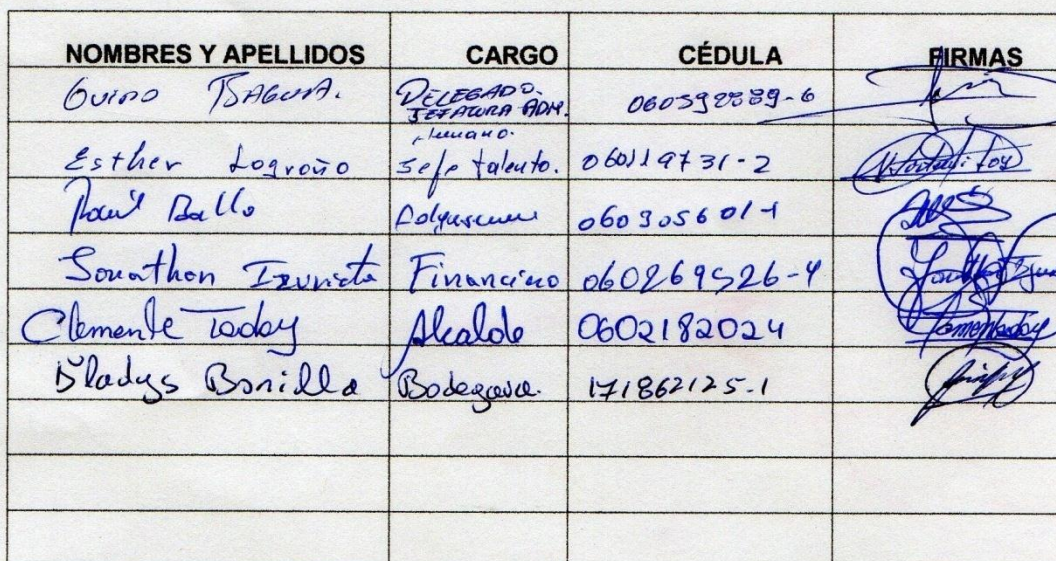 NOMBRES Y APELLIDOS CARGO CÉDULA FIRMAS
GUIDO DELEGADO. JEFATURA ADM.
Esther Logroño Jefe talento. humano. 060119731-2
Raúl Ballo 060305601-1
Jonathan Izurieta Financiero 060269526-4
Clemente Taday Alcalde 0602182024
Gladys Bonilla Bodeguera. 171862125-1